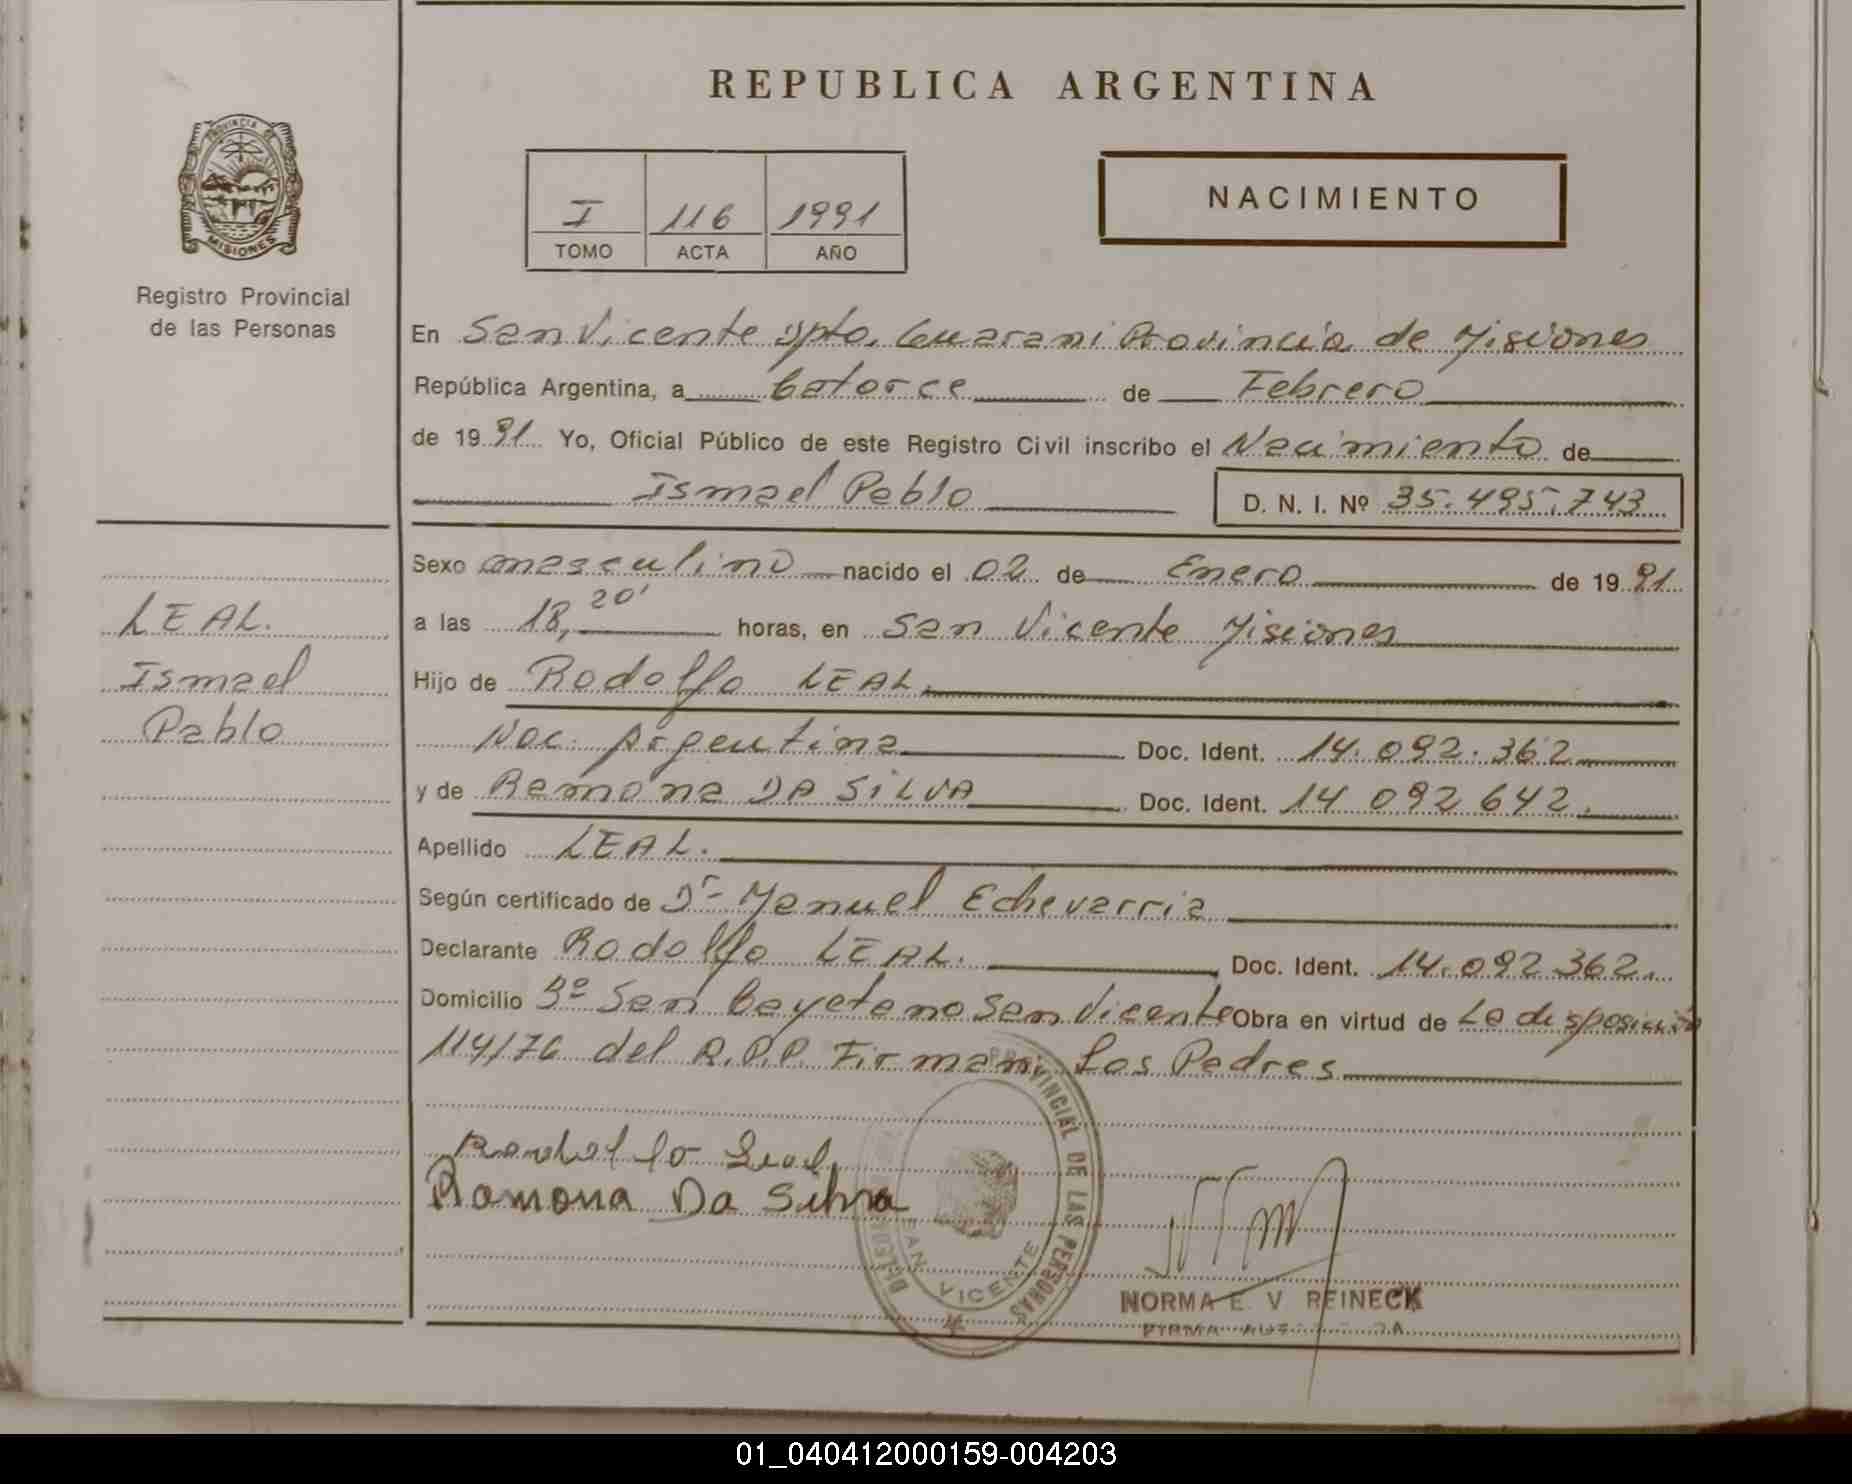 REPUBLICA ARGENTINA
PROVINCIA DE
MISIONES
Registro Provincial
de las Personas
I 116 1991
TOMO ACTA AÑO
NACIMIENTO
En San Vicente Dpto. Guarani Provincia de Misiones
República Argentina, a Catorce de Febrero
de 1991 Yo, Oficial Público de este Registro Civil inscribo el Nacimiento de
Ismael Pablo D. N. I. Nº 35.495.743
Sexo masculino nacido el 02 de Enero de 1991
a las 18,20' horas, en San Vicente Misiones
Hijo de Rodolfo LEAL.
Nac. Argentina Doc. Ident. 14.092.362
y de Ramona DA SILVA Doc. Ident. 14 092 642.
Apellido LEAL.
Según certificado de Dr Manuel Echevarria
Declarante Rodolfo LEAL. Doc. Ident. 14.092 362.
Domicilio Bº San Cayetano San Vicente Obra en virtud de La disposición
114/76 del R.P.P. Firman Los Padres
LEAL.
Ismael
Pablo
Rodolfo Leal
Ramona Da Silva
PROVINCIAL DE LAS PERSONAS
SAN VICENTE
NORMA E. V REINECK
FIRMA
01_040412000159-004203